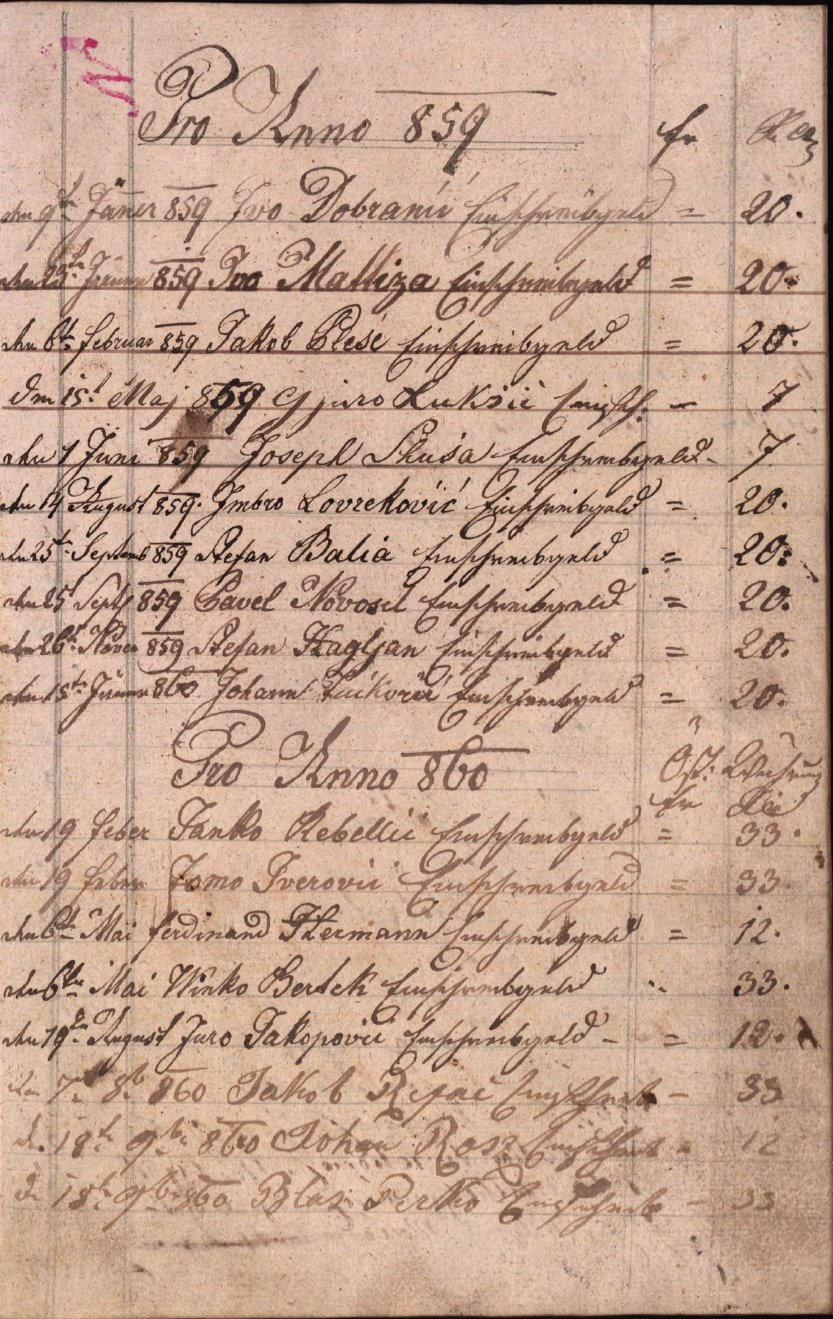 Pro Anno 859 fr
den 9t Jäner 859 Ivo Dobranić Einschreibgeld = 20.
den 25t Jänner 859 Ivo Malliza Einschreibgeld = 20.
den 6t februar 859 Jakob Plesé Einschreibgeld = 20.
den 15t Maj 859 Gjuro Luksić Einsch: – 7
den 1 Juni 859 Joseph Skusa Einschreibgeld – 7
den 14 August 859. Imbro Lovreković Einschreibgeld = 20.
den 25t Septemb 859 Stefan Balia Einschreibgeld = 20.
den 25t Sept 859 Pavel Novosel Einschreibgeld = 20.
den 26t Noven 859 Stefan Hagljan Einschreibgeld = 20.
den 15t Jänner 860 Johann Einschreibgeld = 20.
Pro Anno 860 Öst: Währung
fr
den 19 feber Janko Rebellić Einschreibgeld = 33.
den 19 feber Tomo Iverović Einschreibgeld = 33.
den 6t Mai ferdinand Hermann Einschreibgeld = 12.
den 6ten Mai Winko Bertek Einschreibgeld " 33.
den 19ten August Juro Jakopović Einschreibgeld – = 12.
den 7t 8b 860 Jakob Repač Einschreib – 33
d. 18t 9bi 860 Johan Rosz Einschreib – 12
d 18t 9br 860 Blas Perko Einschreib – 33